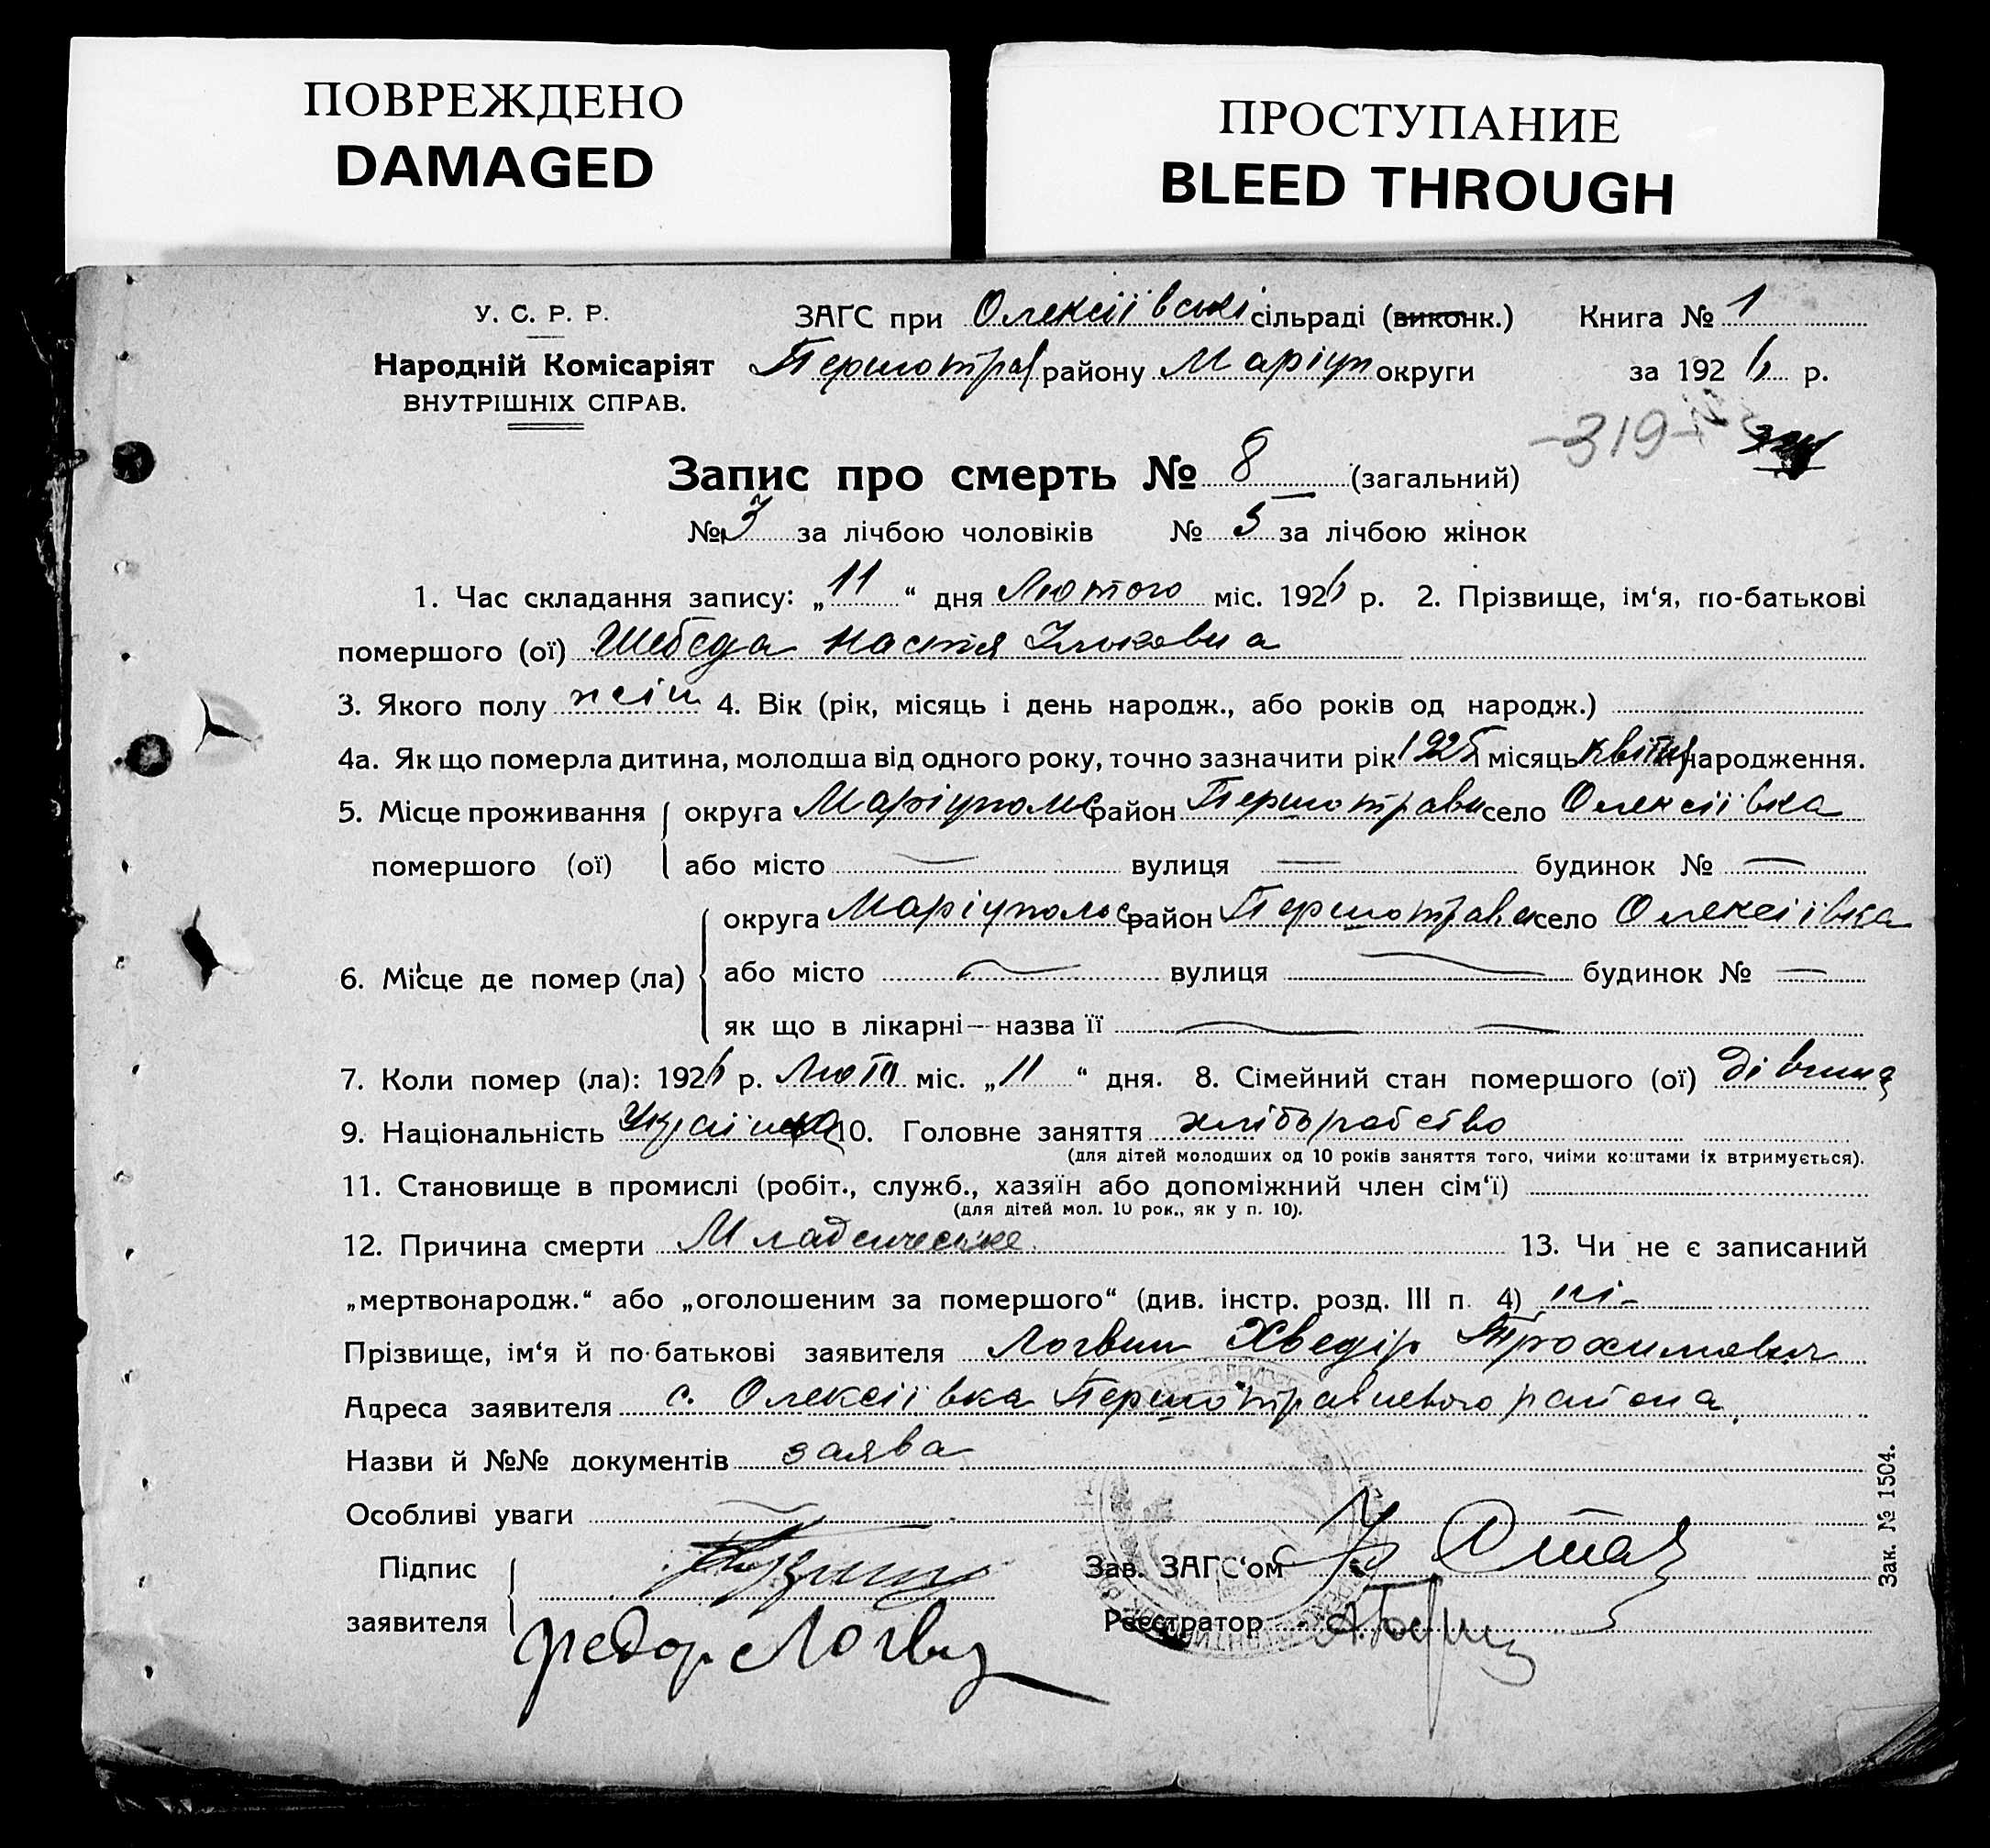 ПОВРЕЖДЕНО
DAMAGED
ПРОСТУПАНИЕ
BLEED THROUGH
У. С. Р. Р.
Народній Комісаріят
ВНУТРІШНІХ СПРАВ.
ЗАГС при Олексіївські сільраді (виконк.) Книга № 1
Першотрав району Маріуп округи за 1926 р.
-319-
Запис про смерть № 8 (загальний)
№ 3 за лічбою чоловіків № 5 за лічбою жінок
1. Час складання запису: „11“ дня Лютого міс. 1926 р. 2. Прізвище, ім‘я, по-батькові
помершого (ої) Шебеда Настя
3. Якого полу жін 4. Вік (рік, місяць і день народж., або років од народж.)
4а. Як що померла дитина, молодша від одного року, точно зазначити рік 1925 місяць квітня народження.
5. Місце проживання помершого (ої) округа Маріупольс район Першотравн село Олексіївка
або місто — вулиця — будинок № —
6. Місце де помер (ла) округа Маріупольс район Першотравн село Олексіївка
або місто — вулиця — будинок № —
як що в лікарні—назва її — —
7. Коли помер (ла): 1926 р. Лют міс. „11“ дня. 8. Сімейний стан помершого (ої) дівчина
9. Національність Українка 10. Головне заняття хліборобство
(для дітей молодших од 10 років заняття того, чиїми коштами їх втримується).
11. Становище в промислі (робіт., служб., хазяїн або допоміжний член сім‘ї)
(для дітей мол. 10 рок., як у п. 10).
12. Причина смерти Младенческе 13. Чи не є записаний
„мертвонародж.“ або „оголошеним за помершого“ (див. інстр. розд. III п. 4) ні-
Прізвище, ім‘я й по-батькові заявителя Логвин Хведір Трохимович
Адреса заявителя с. Олексіївка Першотравневого района.
Назви й №№ документів заява
Особливі уваги —
Підпис
заявителя Федор Логвин
Зав. ЗАГС‘ом
Реєстратор
Зак. № 1504.